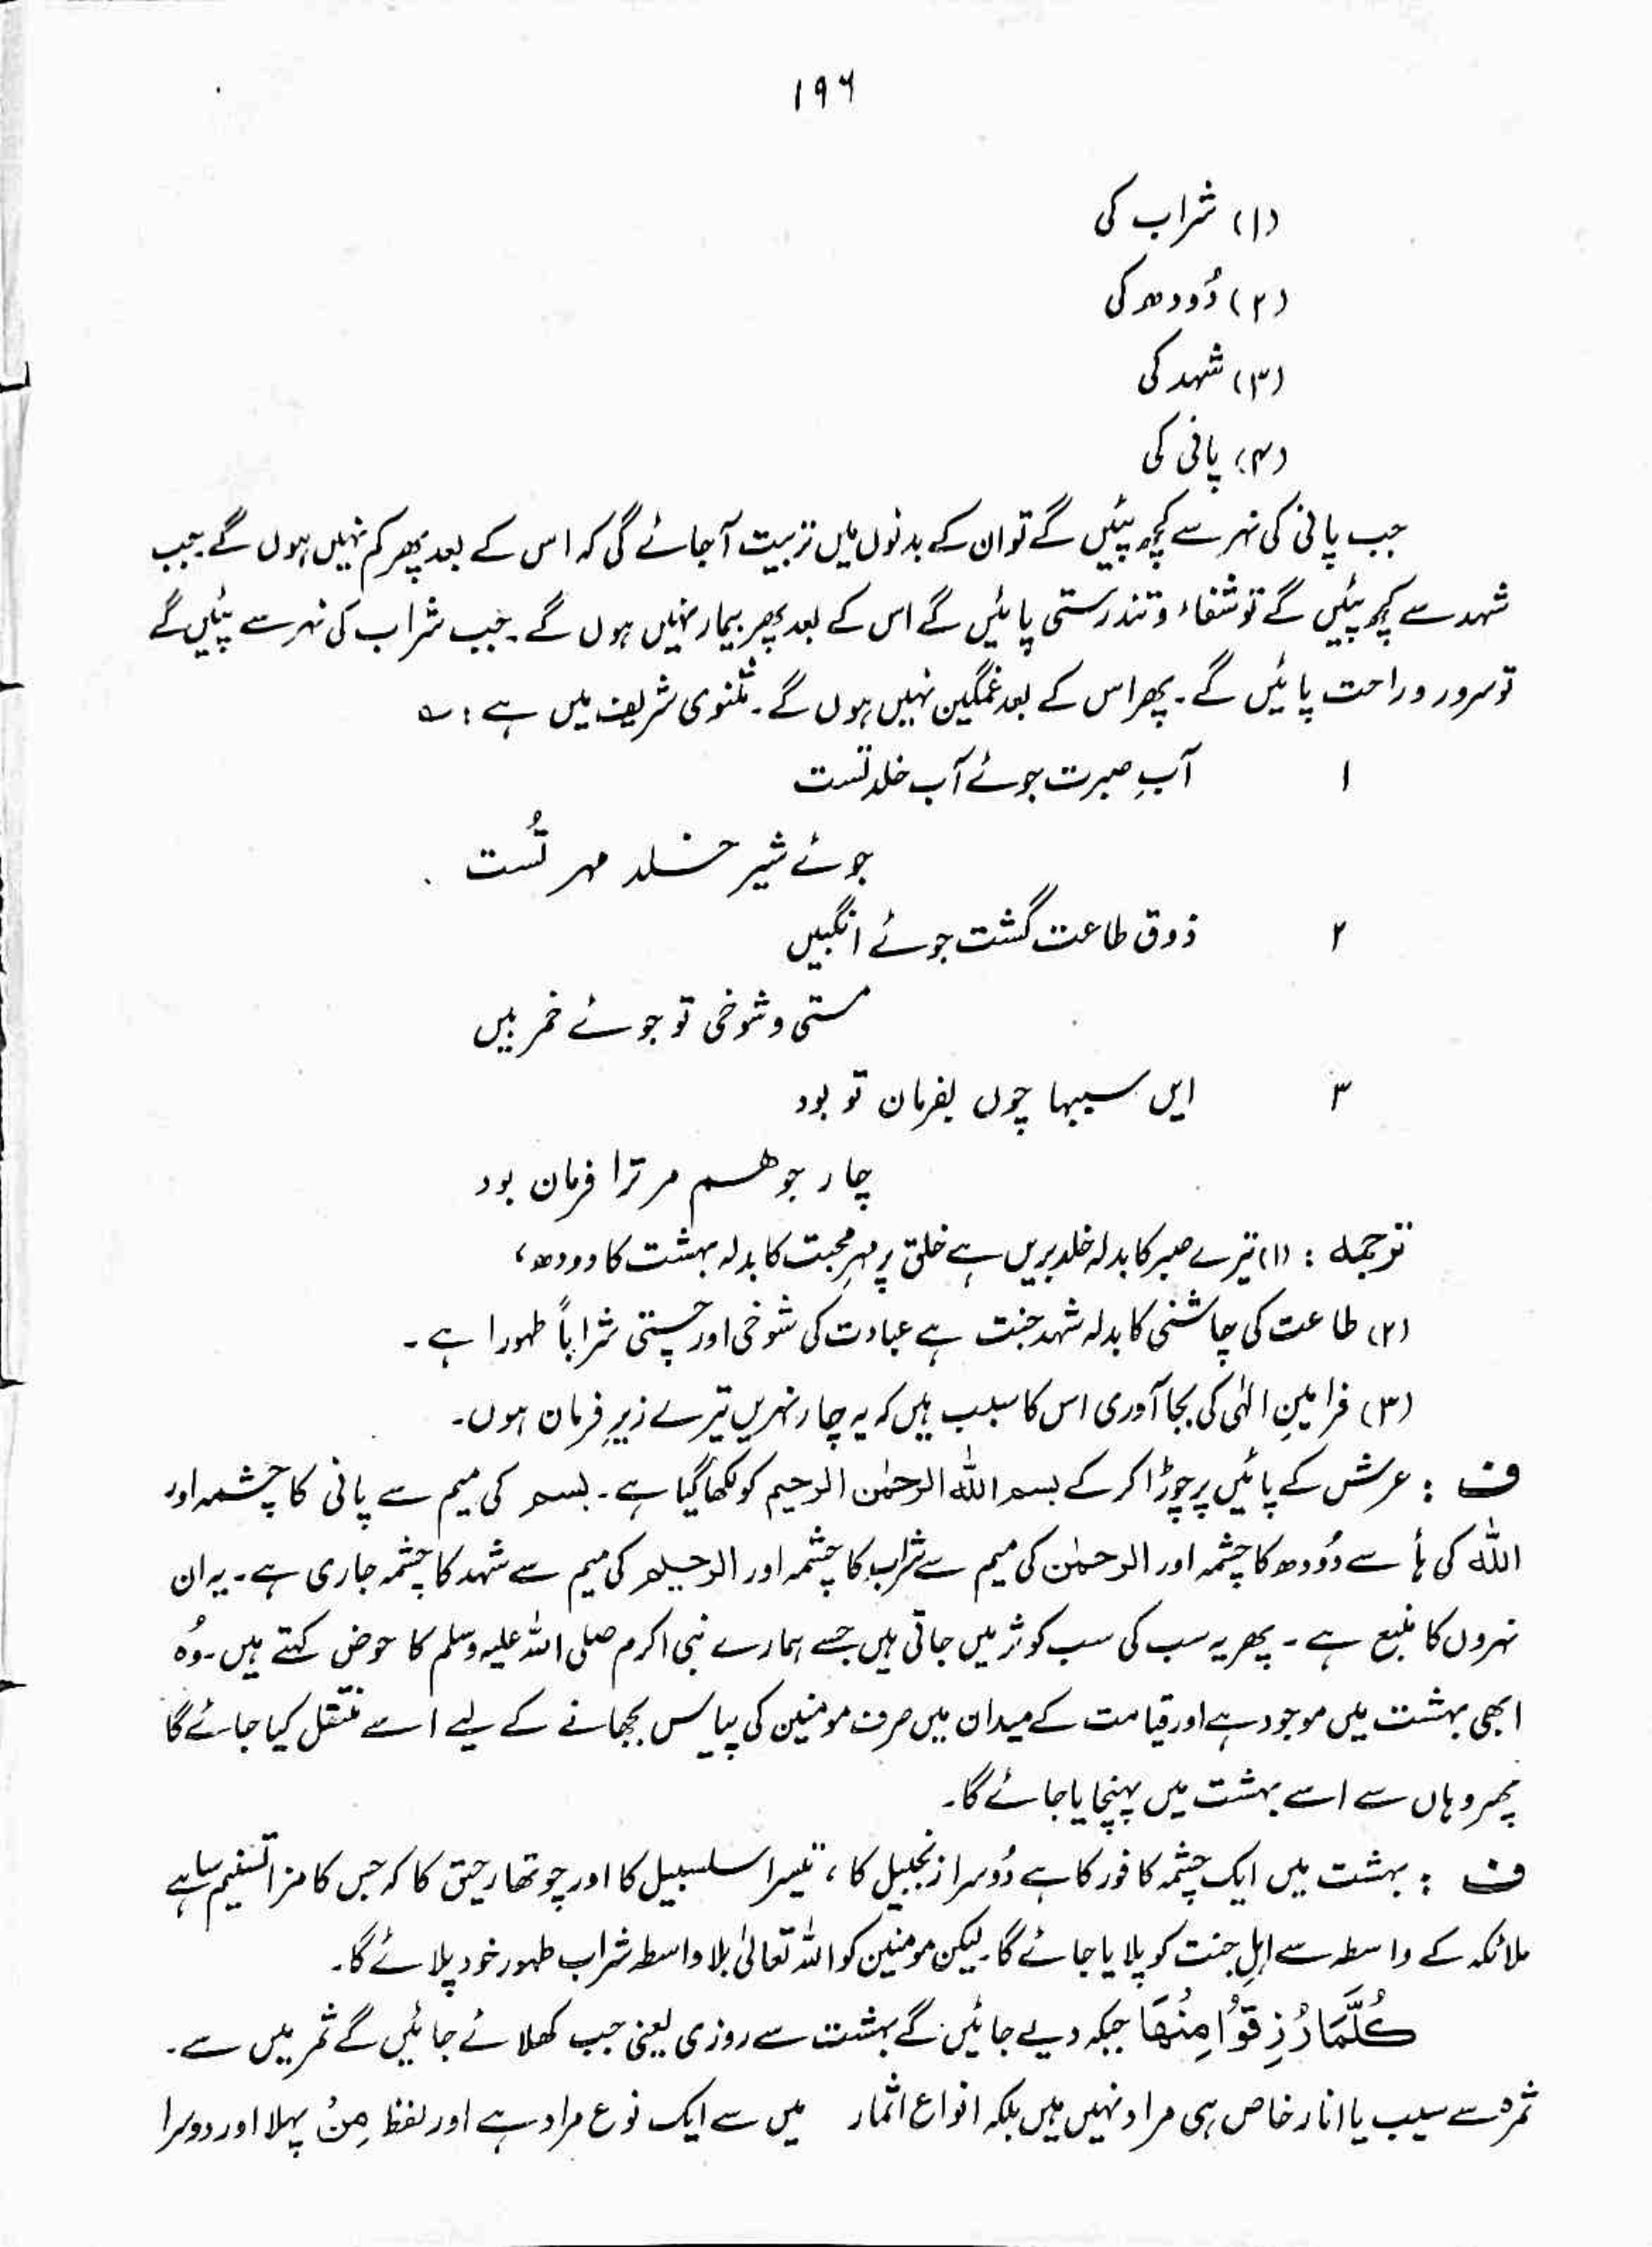 ۱۹۶
(۱) شراب کی
(۲) دُودھ کی
(۳) شہد کی
(۴) پانی کی
جب پانی کی نہر سے کچھ پئیں گے تو ان کے بدنوں میں تربیت آجائے گی کہ اس کے بعد پھر کم نہیں ہوں گے جب
شہد سے کچھ پئیں گے تو شفاء و تندرستی پائیں گے اس کے بعد پھر بیمار نہیں ہوں گے۔ جب شراب کی نہر سے پئیں گے
تو سرور و راحت پائیں گے۔ پھر اس کے بعد غمگین نہیں ہوں گے۔ مثنوی شریف میں ہے : ؎
۱ آبِ صبرت جوئے آب خلد تست
جوئے شیر خلد مہر تُست
۲ ذوق طاعت گشت جوئے انگبیں
مستی و شوخی تو جوئے خمر بیں
۳ ایں سببہا چوں بفرمان تو بود
چار جو ھم مر ترا فرمان بود
ترجمہ : (۱) تیرے صبر کا بدلہ خلد بریں ہے خلق پر مہرِ محبت کا بدلہ بہشت کا دودھ ،
(۲) طاعت کی چاشنی کا بدلہ شہد جنت ہے عبادت کی شوخی اور چستی شراباً طہورا ہے ۔
(۳) فرامینِ الٰہی کی بجا آوری اس کا سبب ہیں کہ یہ چار نہریں تیرے زیرِ فرمان ہوں۔
ف : عرش کے پائیں پر چوڑا کر کے بسم اللہ الرحمٰن الرحیم کو لکھا گیا ہے ۔ بسم کی میم سے پانی کا چشمہ اور
اللہ کی ہأ سے دُودھ کا چشمہ اور الرحمٰن کی میم سے شراب کا چشمہ اور الرحیم کی میم سے شہد کا چشمہ جاری ہے۔ یہ ان
نہروں کا منبع ہے ۔ پھر یہ سب کی سب کوثر میں جاتی ہیں جسے ہمارے نبی اکرم صلی اللہ علیہ وسلم کا حوض کہتے ہیں ۔ وُہ
ابھی بہشت میں موجود ہے اور قیامت کے میدان میں صرف مومنین کی پیاس بجھانے کے لیے اسے منتقل کیا جائے گا
پھر وہاں سے اسے بہشت میں پہنچایا جائے گا۔
ف : بہشت میں ایک چشمہ کافور کا ہے دُوسرا زنجبیل کا ، تیسرا سلسبیل کا اور چوتھا رحیق کا کہ جس کا مزا تسنیم سا ہے
ملائکہ کے واسطہ سے اہلِ جنت کو پلایا جائے گا۔ لیکن مومنین کو اللہ تعالیٰ بلا واسطہ شراب طہور خود پلائے گا۔
كُلَّمَا رُزِقُوْا مِنْهَا جبکہ دیے جائیں گے بہشت سے روزی یعنی جب کھلائے جائیں گے ثمر میں سے ۔
ثمرہ سے سیب یا انار خاص ہی مراد نہیں ہیں بلکہ انواع اثمار میں سے ایک نوع مراد ہے اور لفظ مِنْ پہلا اور دوسرا